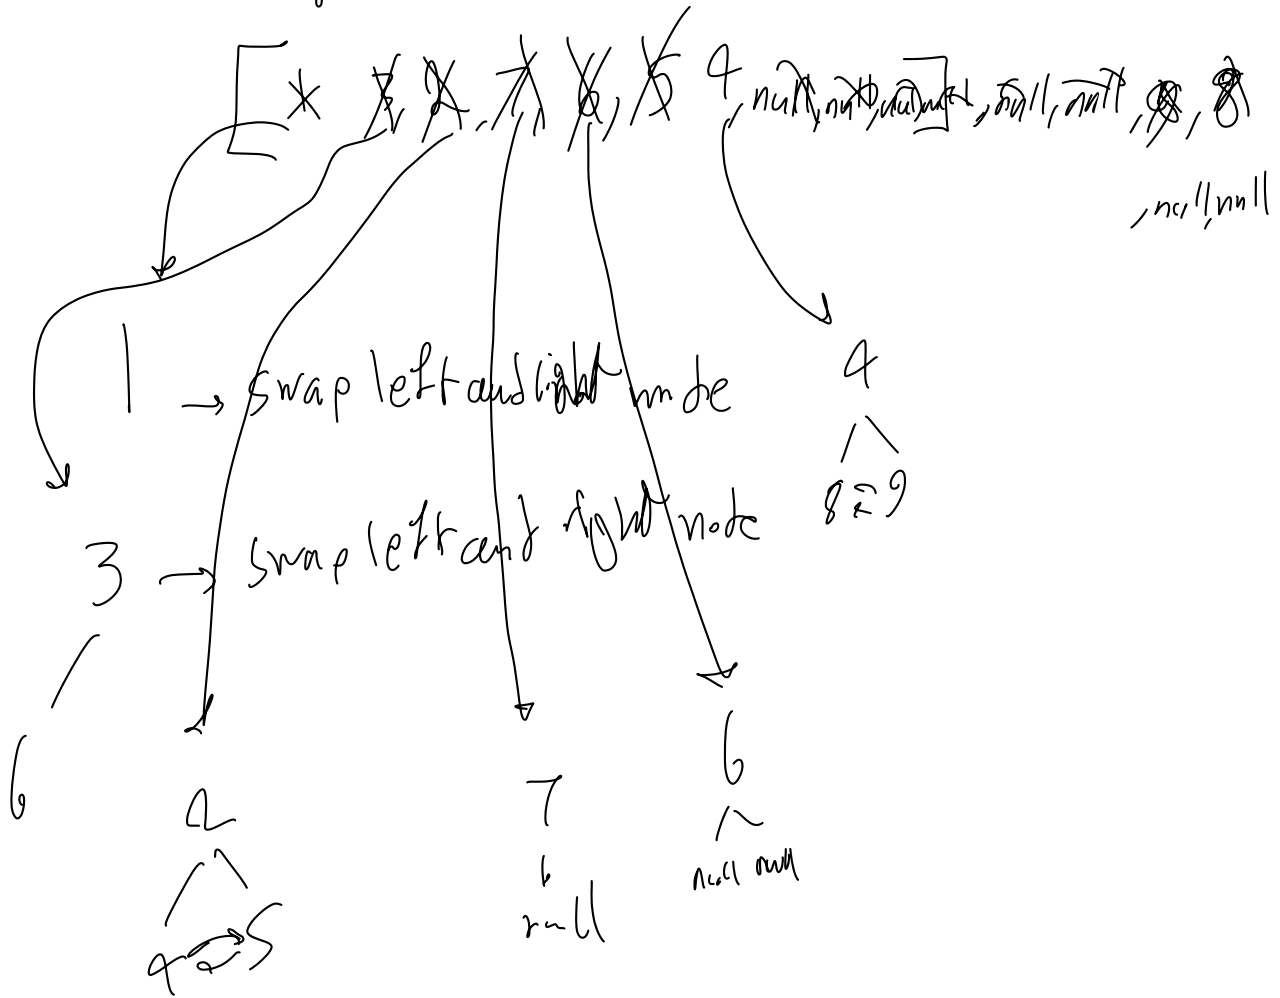 [ 1 3, 2, 7, 6, 5 4, null, null, null, null ], null, null, 9, 8
, null, null
1 → swap left and right node
4
8 9
3 → swap left and right node
6
6
2
7
null null
null
4 5